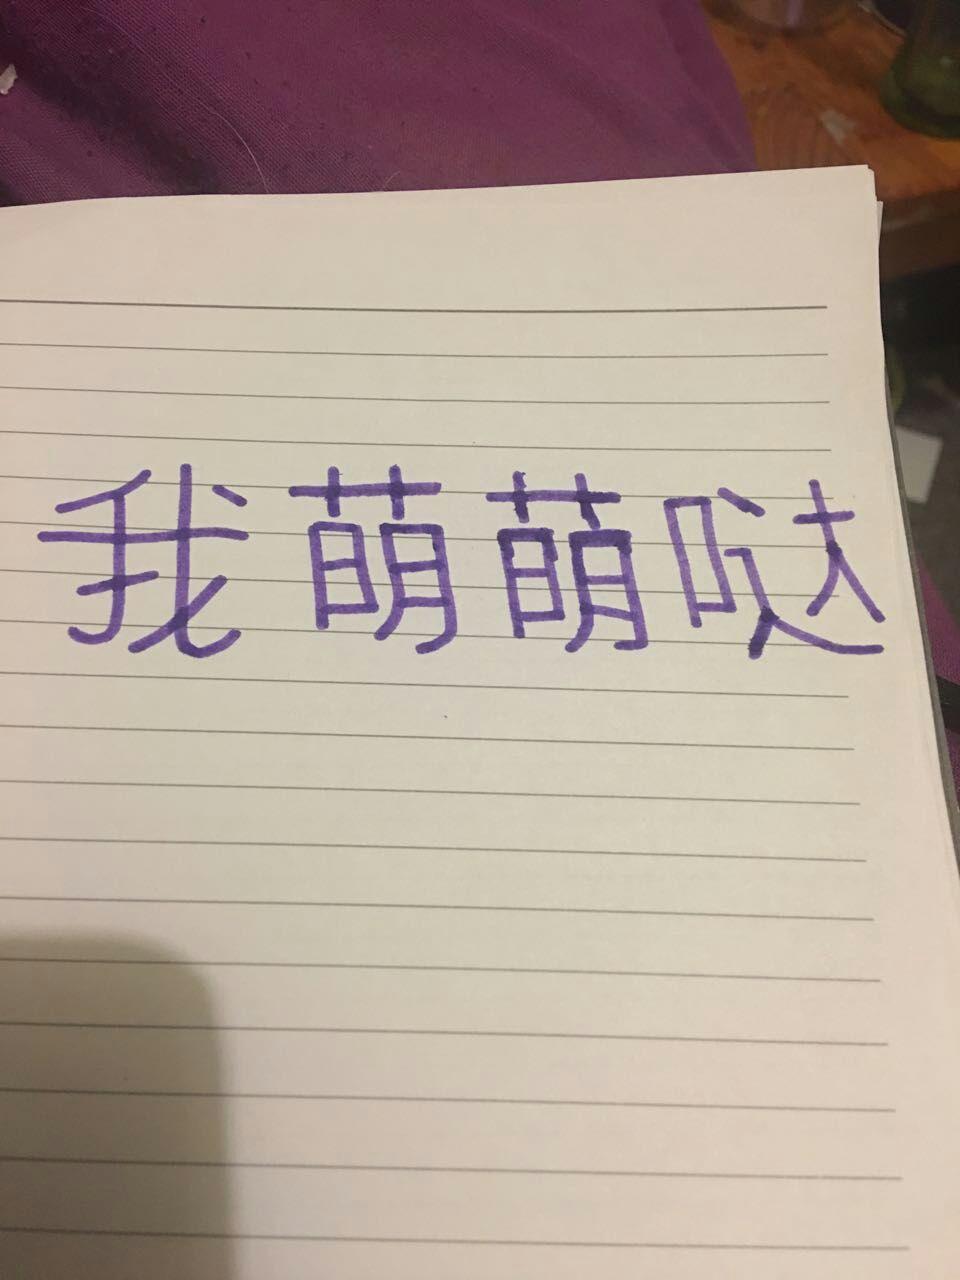 我萌萌哒